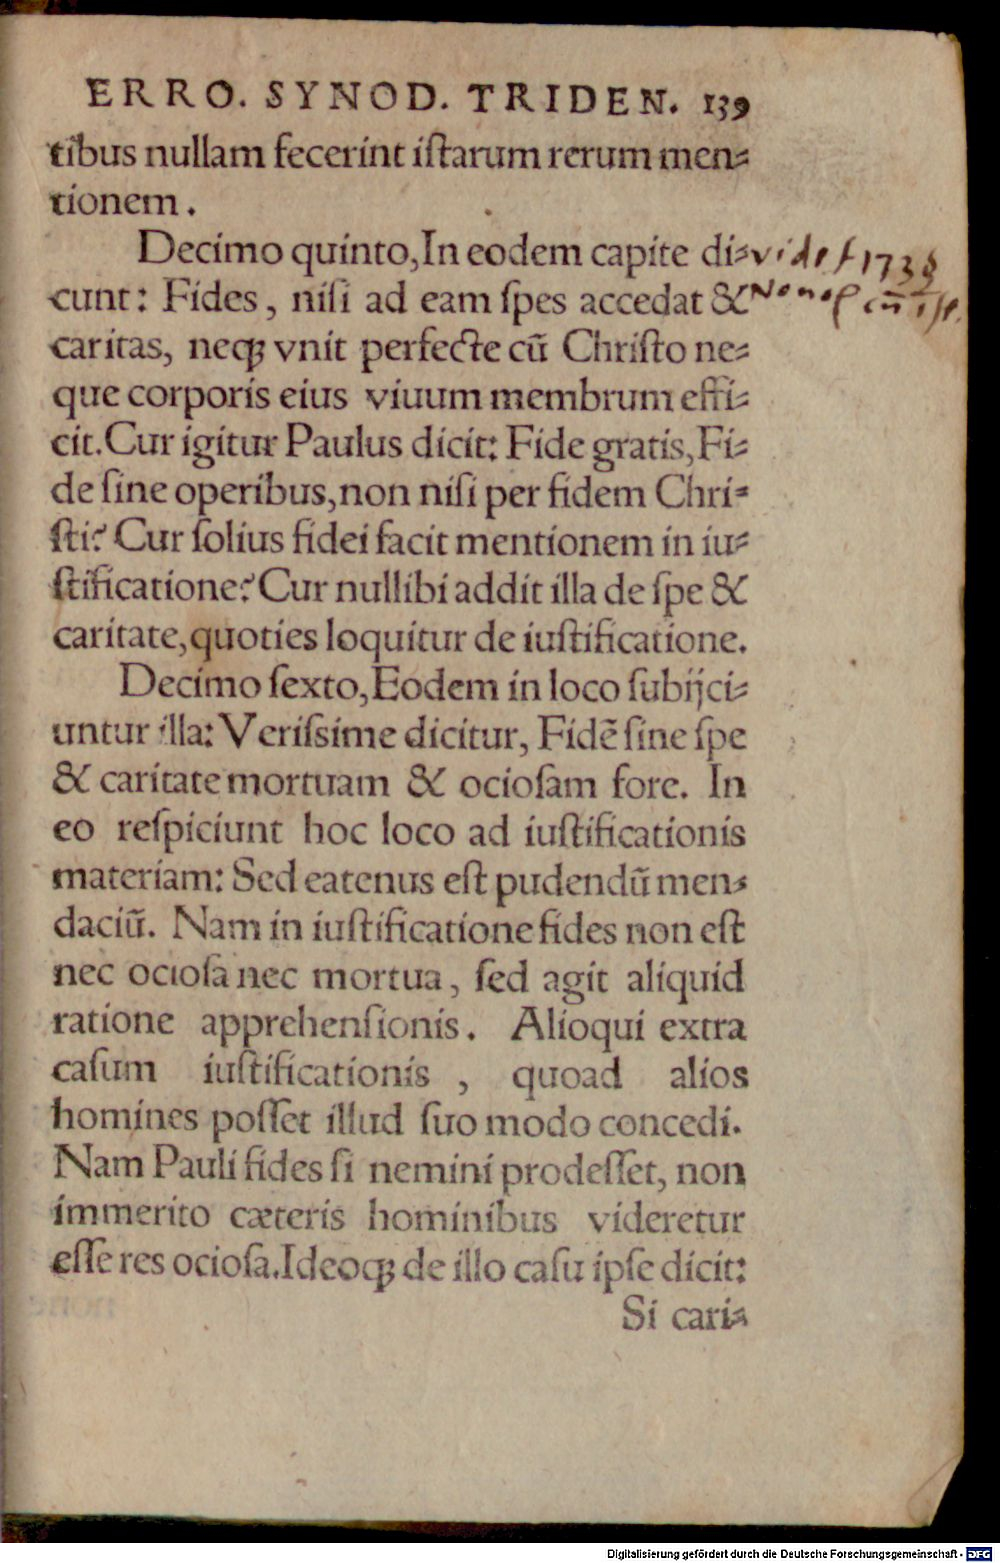 ERRO. SYNOD. TRIDEN. 139
tibus nullam fecerint iſtarum rerum men⸗
tionem.
Decimo quinto, In eodem capite di⸗
cunt: Fides, niſi ad eam ſpes accedat &
caritas, neqꝫ vnit perfecte cũ Chriſto ne⸗
que corporis eius viuum membrum effi⸗
cit. Cur igitur Paulus dicit: Fide gratis, Fi⸗
de ſine operibus, non niſi per fidem Chri⸗
ſti? Cur ſolius fidei facit mentionem in iu⸗
ſtificatione? Cur nullibi addit illa de ſpe &
caritate, quoties loquitur de iuſtificatione.
Decimo ſexto, Eodem in loco ſubijci⸗
untur illa: Veriſsime dicitur, Fidẽ ſine ſpe
& caritate mortuam & ocioſam fore. In
eo reſpiciunt hoc loco ad iuſtificationis
materiam: Sed eatenus eſt pudendũ men⸗
daciũ. Nam in iuſtificatione fides non eſt
nec ocioſa nec mortua, ſed agit aliquid
ratione apprehenſionis. Alioqui extra
caſum iuſtificationis, quoad alios
homines poſſet illud ſuo modo concedi.
Nam Pauli fides ſi nemini prodeſſet, non
immerito cæteris hominibus videretur
eſſe res ocioſa. Ideoqꝫ de illo caſu ipſe dicit:
Si cari⸗
Digitalisierung gefördert durch die Deutsche Forschungsgemeinschaft - DFG